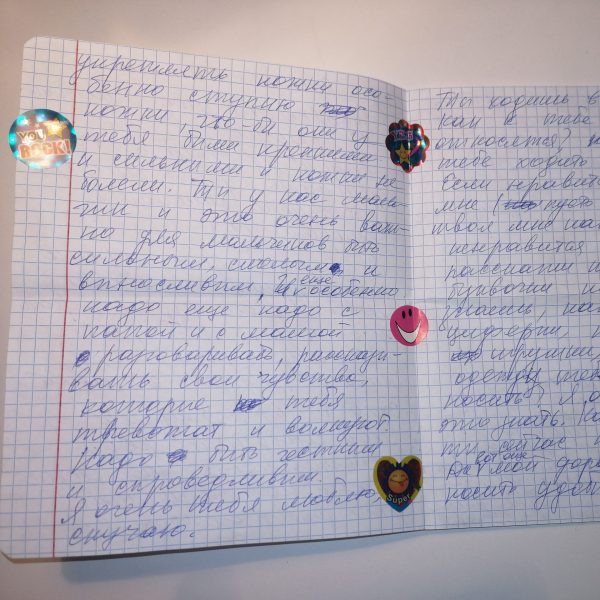 укреплять ножки осо-
бенно ступню
ножки, что-бы они у
тебя были крепкими
и сильными и ножки не
болели. Ты у нас маль-
чик и это очень важ-
но для мальчиков быть
сильным, смелым и
выносливым, И еще особенно
надо еще надо с
папой и с мамой
разговаривать, рассказы-
вать свои чувства,
которие тебя
тревожат и волнуют.
Надо быть честным
и справедливим.
Я очень тебя люблю,
скучаю.
YOU ROCK!
Super
Ты ходишь в
как к тебе
относятся?
тебе ходить
Если нравит
мне пусть
твоя мне на
ненравится
расскажи
буквочки
цифорки,
игрушки,
одежду
носить? И
это знать,
ты сейчас
мой доро
носить удо